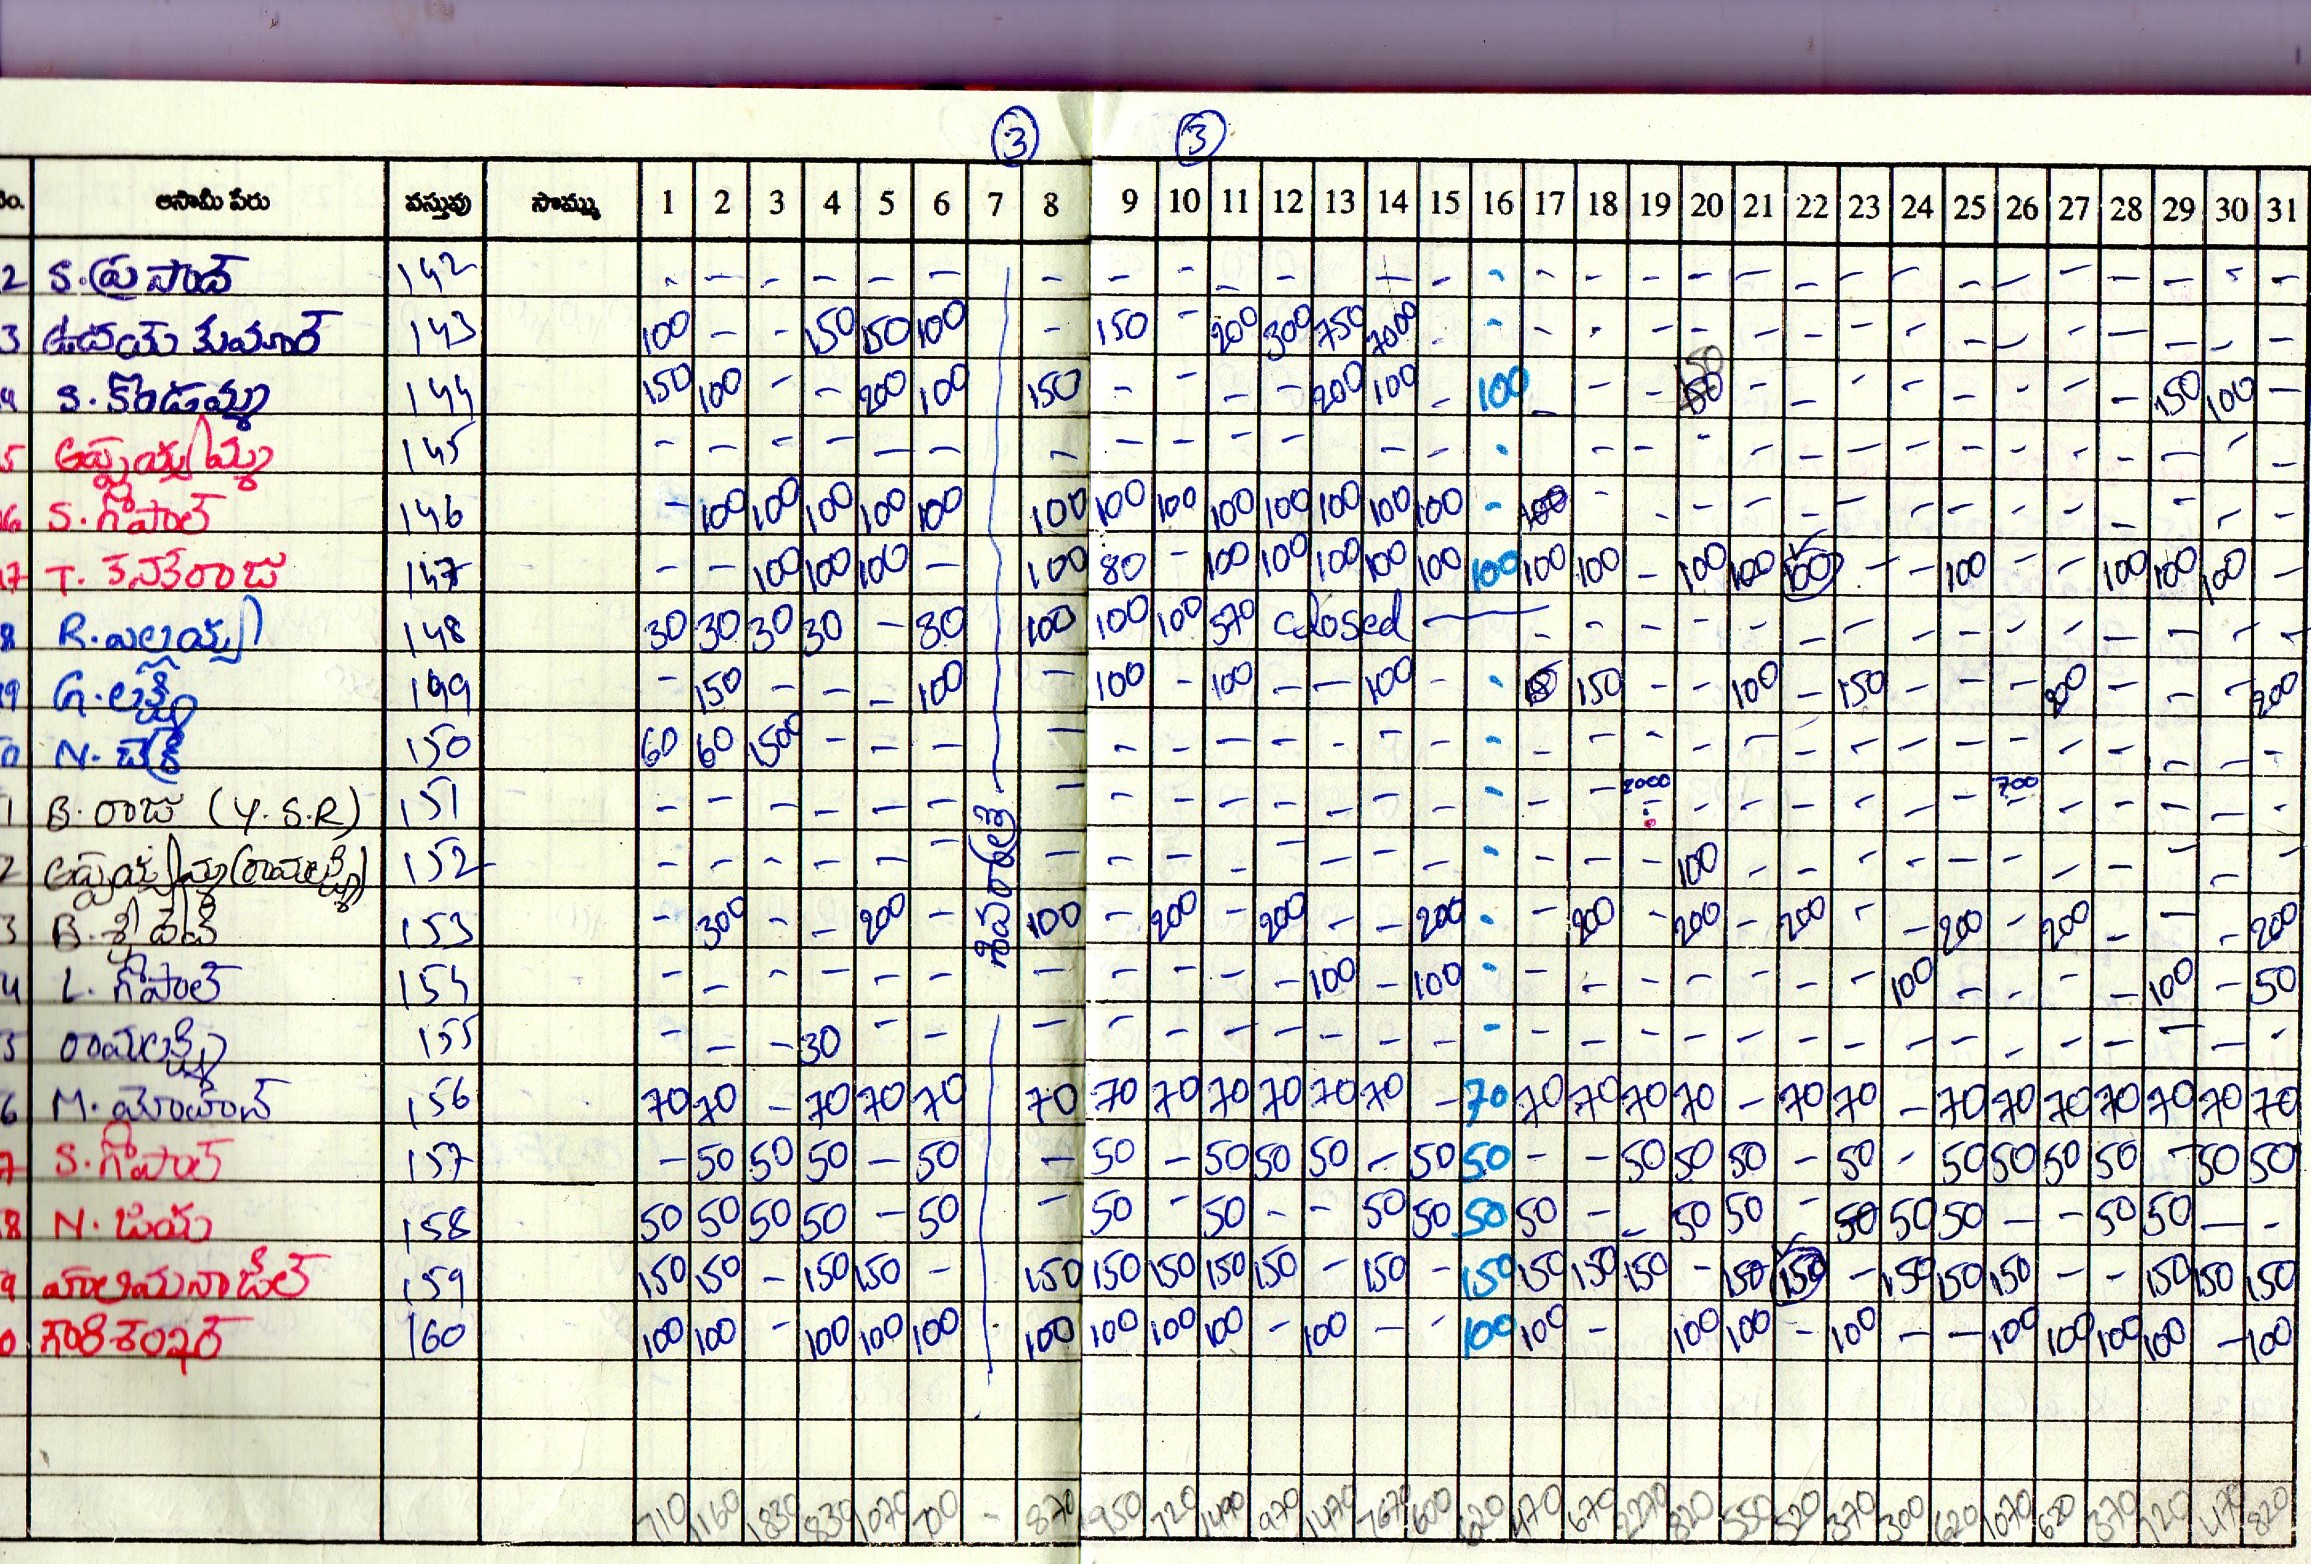 ③ ③
నం. ఆసామీ పేరు వస్తువు సొమ్ము 1 2 3 4 5 6 7 8 9 10 11 12 13 14 15 16 17 18 19 20 21 22 23 24 25 26 27 28 29 30 31
2 S. ప్రసాద్ 142 - - - - - - - - - - - - - - - - - - - - - - - - - - - - - -
3 ఉదయ్ కుమార్ 143 100 - - 150 150 100 - 150 - 200 300 750 7000 - - - - - - - - - - - - - - - - -
4 S. కొండమ్మ 144 150 100 - - 200 100 150 - - - - 200 100 - 100 - - - 150 - - - - - - - - 150 100 -
5 అప్పయ్యమ్మ 145 - - - - - - - - - - - - - - - - - - - - - - - - - - - - - -
6 S. గోపాల్ 146 - 100 100 100 100 100 100 100 100 100 100 100 100 100 - 100 - - - - - - - - - - - - - -
7 T. కనకరాజు 147 - - 100 100 100 - 100 80 - 100 100 100 100 100 100 100 100 - 100 100 100 - - 100 - - 100 100 100 -
8 R. ఎల్లయ్య 148 30 30 30 30 - 30 100 100 100 570 closed - - - - - - - - - - - - - - -
9 G. లక్ష్మి 149 - 150 - - - 100 - 100 - 100 - - 100 - - 150 - - 100 - 150 - - - 200 - - - 200
0 N. చక్రి 150 60 60 1500 - - - - - - - - - - - - - - - - - - - - - - - - - - -
1 B. రాజు (Y.S.R) 151 - - - - - - - - - - - - - - - - - 2000 - - - - - - 700 - - - - -
2 అప్పయ్యమ్మ (రామలక్ష్మి) 152 - - - - - - - - - - - - - - - - - - 100 - - - - - - - - - - -
శివరాత్రి
3 B. శ్రీదేవి 153 - 300 - - 200 - 100 - 200 - 200 - - 200 - - 200 - 200 - 200 - - 200 - 200 - - - 200
4 L. గోపాల్ 154 - - - - - - - - - - - 100 - 100 - - - - - - - - 100 - - - - 100 - 50
5 రామలక్ష్మి 155 - - - 30 - - - - - - - - - - - - - - - - - - - - - - - - - -
6 M. మోహన్ 156 70 70 - 70 70 70 70 70 70 70 70 70 70 - 70 70 70 70 70 - 70 70 - 70 70 70 70 70 70 70
7 S. గోపాల్ 157 - 50 50 50 - 50 - 50 - 50 50 50 - 50 50 - - 50 50 50 - 50 - 50 50 50 50 - 50 50
8 N. జయ 158 50 50 50 50 - 50 - 50 - 50 - - 50 50 50 50 - - 50 50 - 50 50 50 - - 50 50 - -
9 150 150 - 150 150 - 150 150 150 150 150 - 150 - 150 150 150 150 - 150 150 - 150 150 150 - - 150 150 150
0 గౌరిశంఖర్ 160 100 100 - 100 100 100 100 100 100 100 - 100 - - 100 100 - 100 100 - 100 - - 100 100 100 100 - 100
710 1160 1830 830 1070 700 - 870 950 720 1490 970 1470 7670 600 620 470 670 2270 820 550 520 370 300 620 1070 620 370 720 470 820